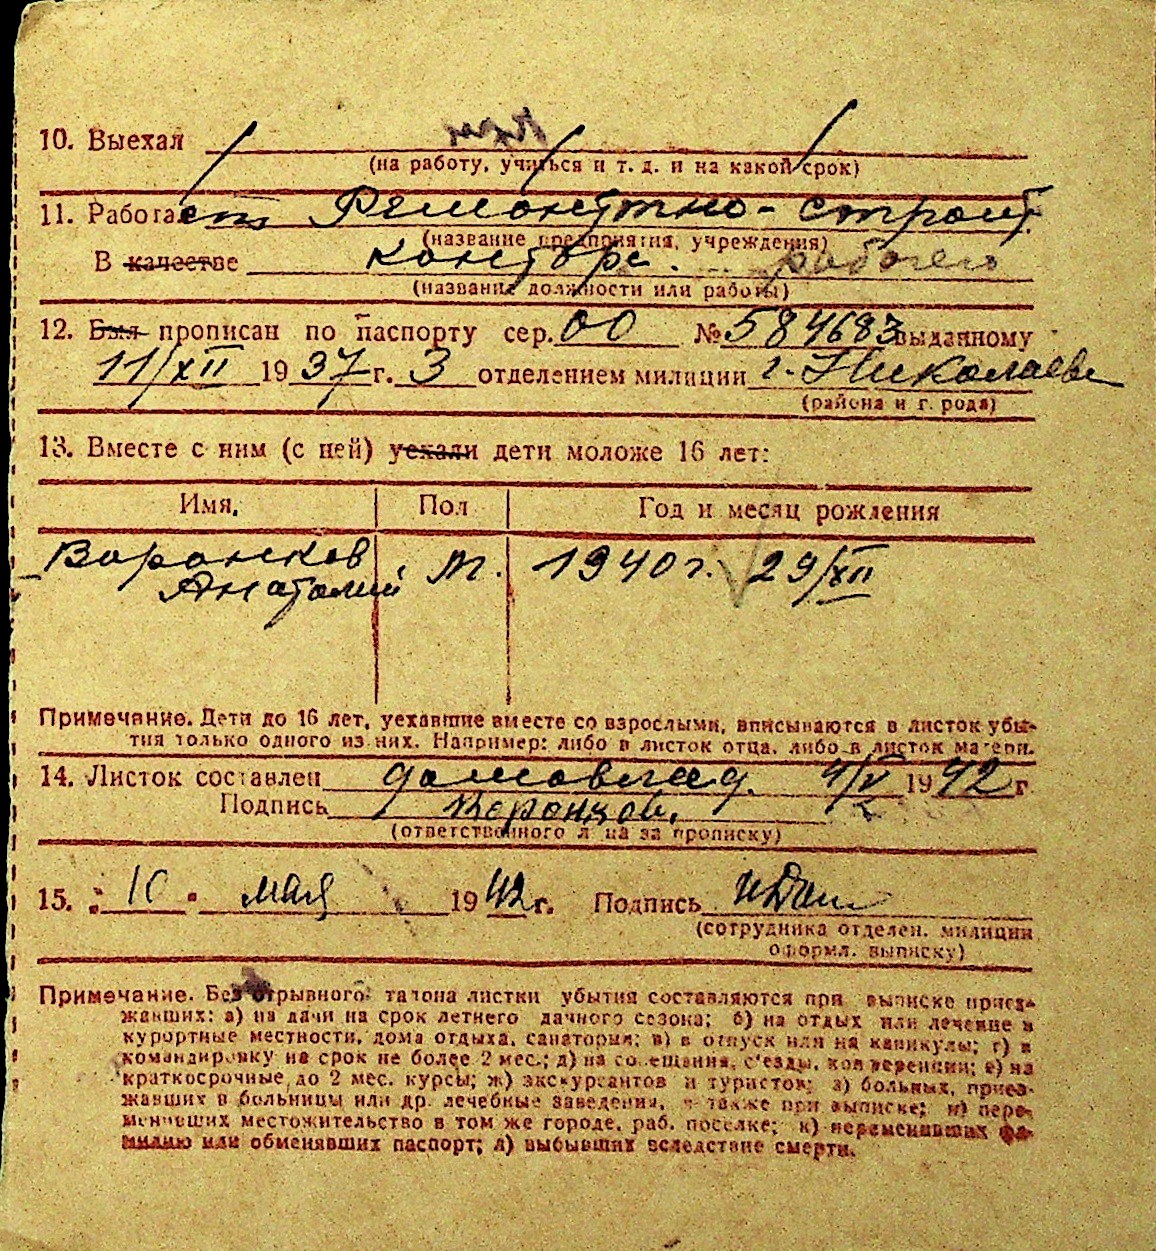 10. Выехал
(на работу, учиться и т. д. и на какой срок)
11. Работает Ремонтно-строит.
(название предприятия, учреждения)
В качестве контора. рабочего
(название должности или работы)
12. Был прописан по паспорту сер. 00 № 584683 выданному
11/XII 1937 г. 3 отделением милиции г. Николаева
(района и города)
13. Вместе с ним (с ней) уехали дети моложе 16 лет:
Имя, Пол Год и месяц рождения
Воронков М. 1940 г. 29/XII
Анатолий
Примечание. Дети до 16 лет, уехавшие вместе со взрослыми, вписываются в листок убы-
тия только одного из них. Например: либо в листок отца, либо в листок матери.
14. Листок составлен 4/V 1942 г
Подпись
(ответственного лица за прописку)
15. "10" мая 1942 г. Подпись
(сотрудника отделен. милиции
оформл. выписку)
Примечание. Без отрывного талона листки убытия составляются при выписке приез-
жавших: а) на дачи на срок летнего дачного сезона; б) на отдых или лечение в
курортные местности, дома отдыха, санатории; в) в отпуск или на каникулы; г) в
командировку на срок не более 2 мес.; д) на совещания, с'езды, конференции; е) на
краткосрочные до 2 мес. курсы; ж) экскурсантов и туристов; з) больных, приез-
жавших в больницы или др. лечебные заведения, а также при выписке; и) пере-
менивших местожительство в том же городе, раб. поселке; к) переменивших фа-
милию или обменявших паспорт; л) выбывших вследствие смерти.